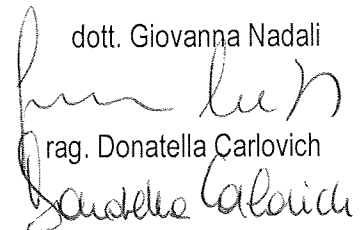 dott. Giovanna Nadali
rag. Donatella Carlovich
Donatella Carlovich